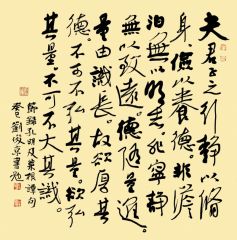 夫君子之行靜以脩
身儉以養德非澹
泊無以明志非寧靜
無以致遠德隨量進
量由識長故欲厚其
德不可不弘其量欲弘
其量不可不大其識
孔明及菜根譚句
劉俊京書